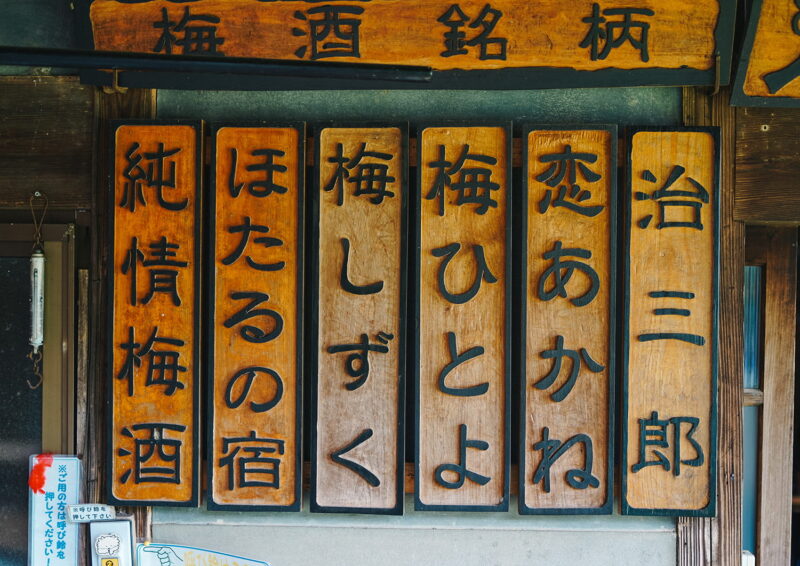 梅酒銘柄
治三郎
恋あかね
梅ひとよ
梅しずく
ほたるの宿
純情梅酒
※ご用の方は呼び鈴を
押してください!
※呼び鈴を
押して下さい